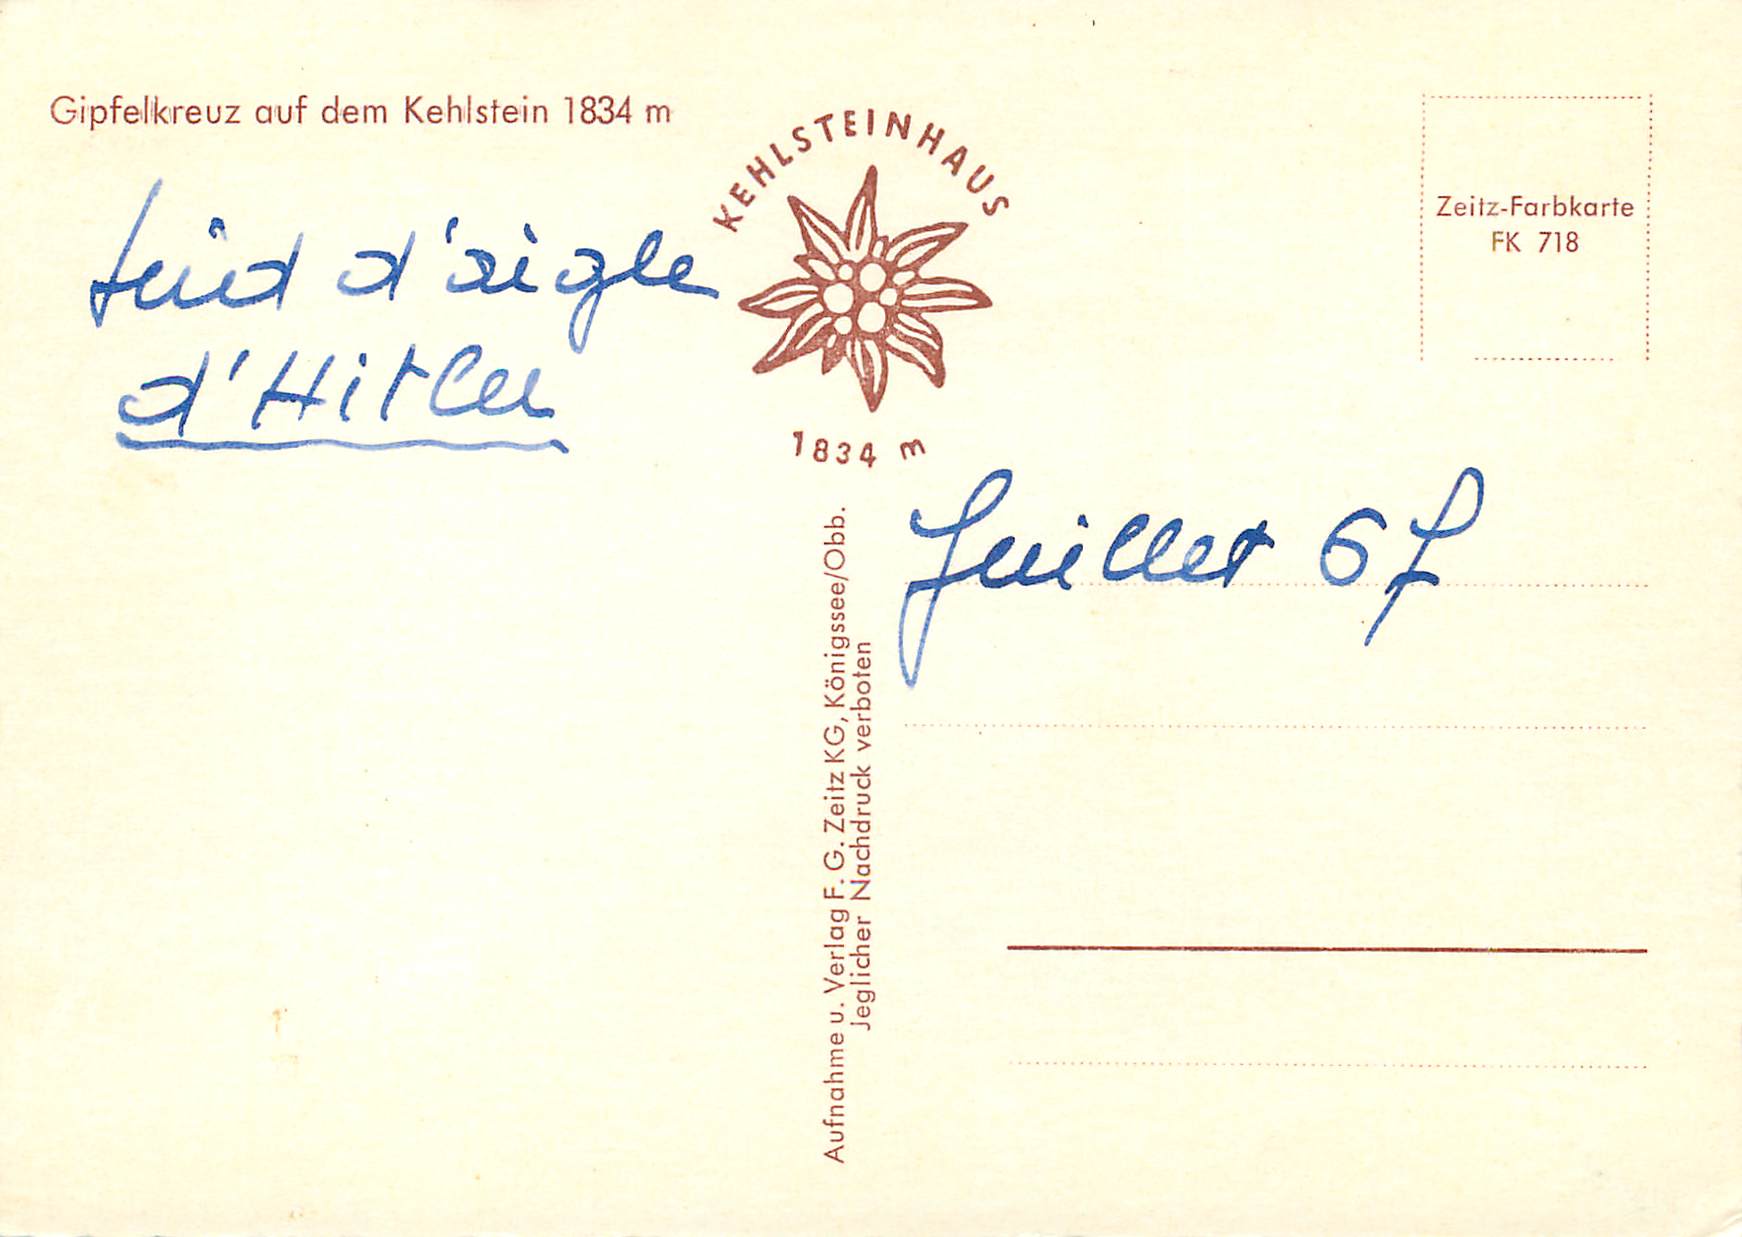 Gipfelkreuz auf dem Kehlstein 1834 m
KEHLSTEINHAUS
1834 m
Zeitz-Farbkarte
FK 718
d'aigle
d'Hitler
Juillet 67
Aufnahme u. Verlag F. G. Zeitz KG, Königssee/Obb.
Jeglicher Nachdruck verboten